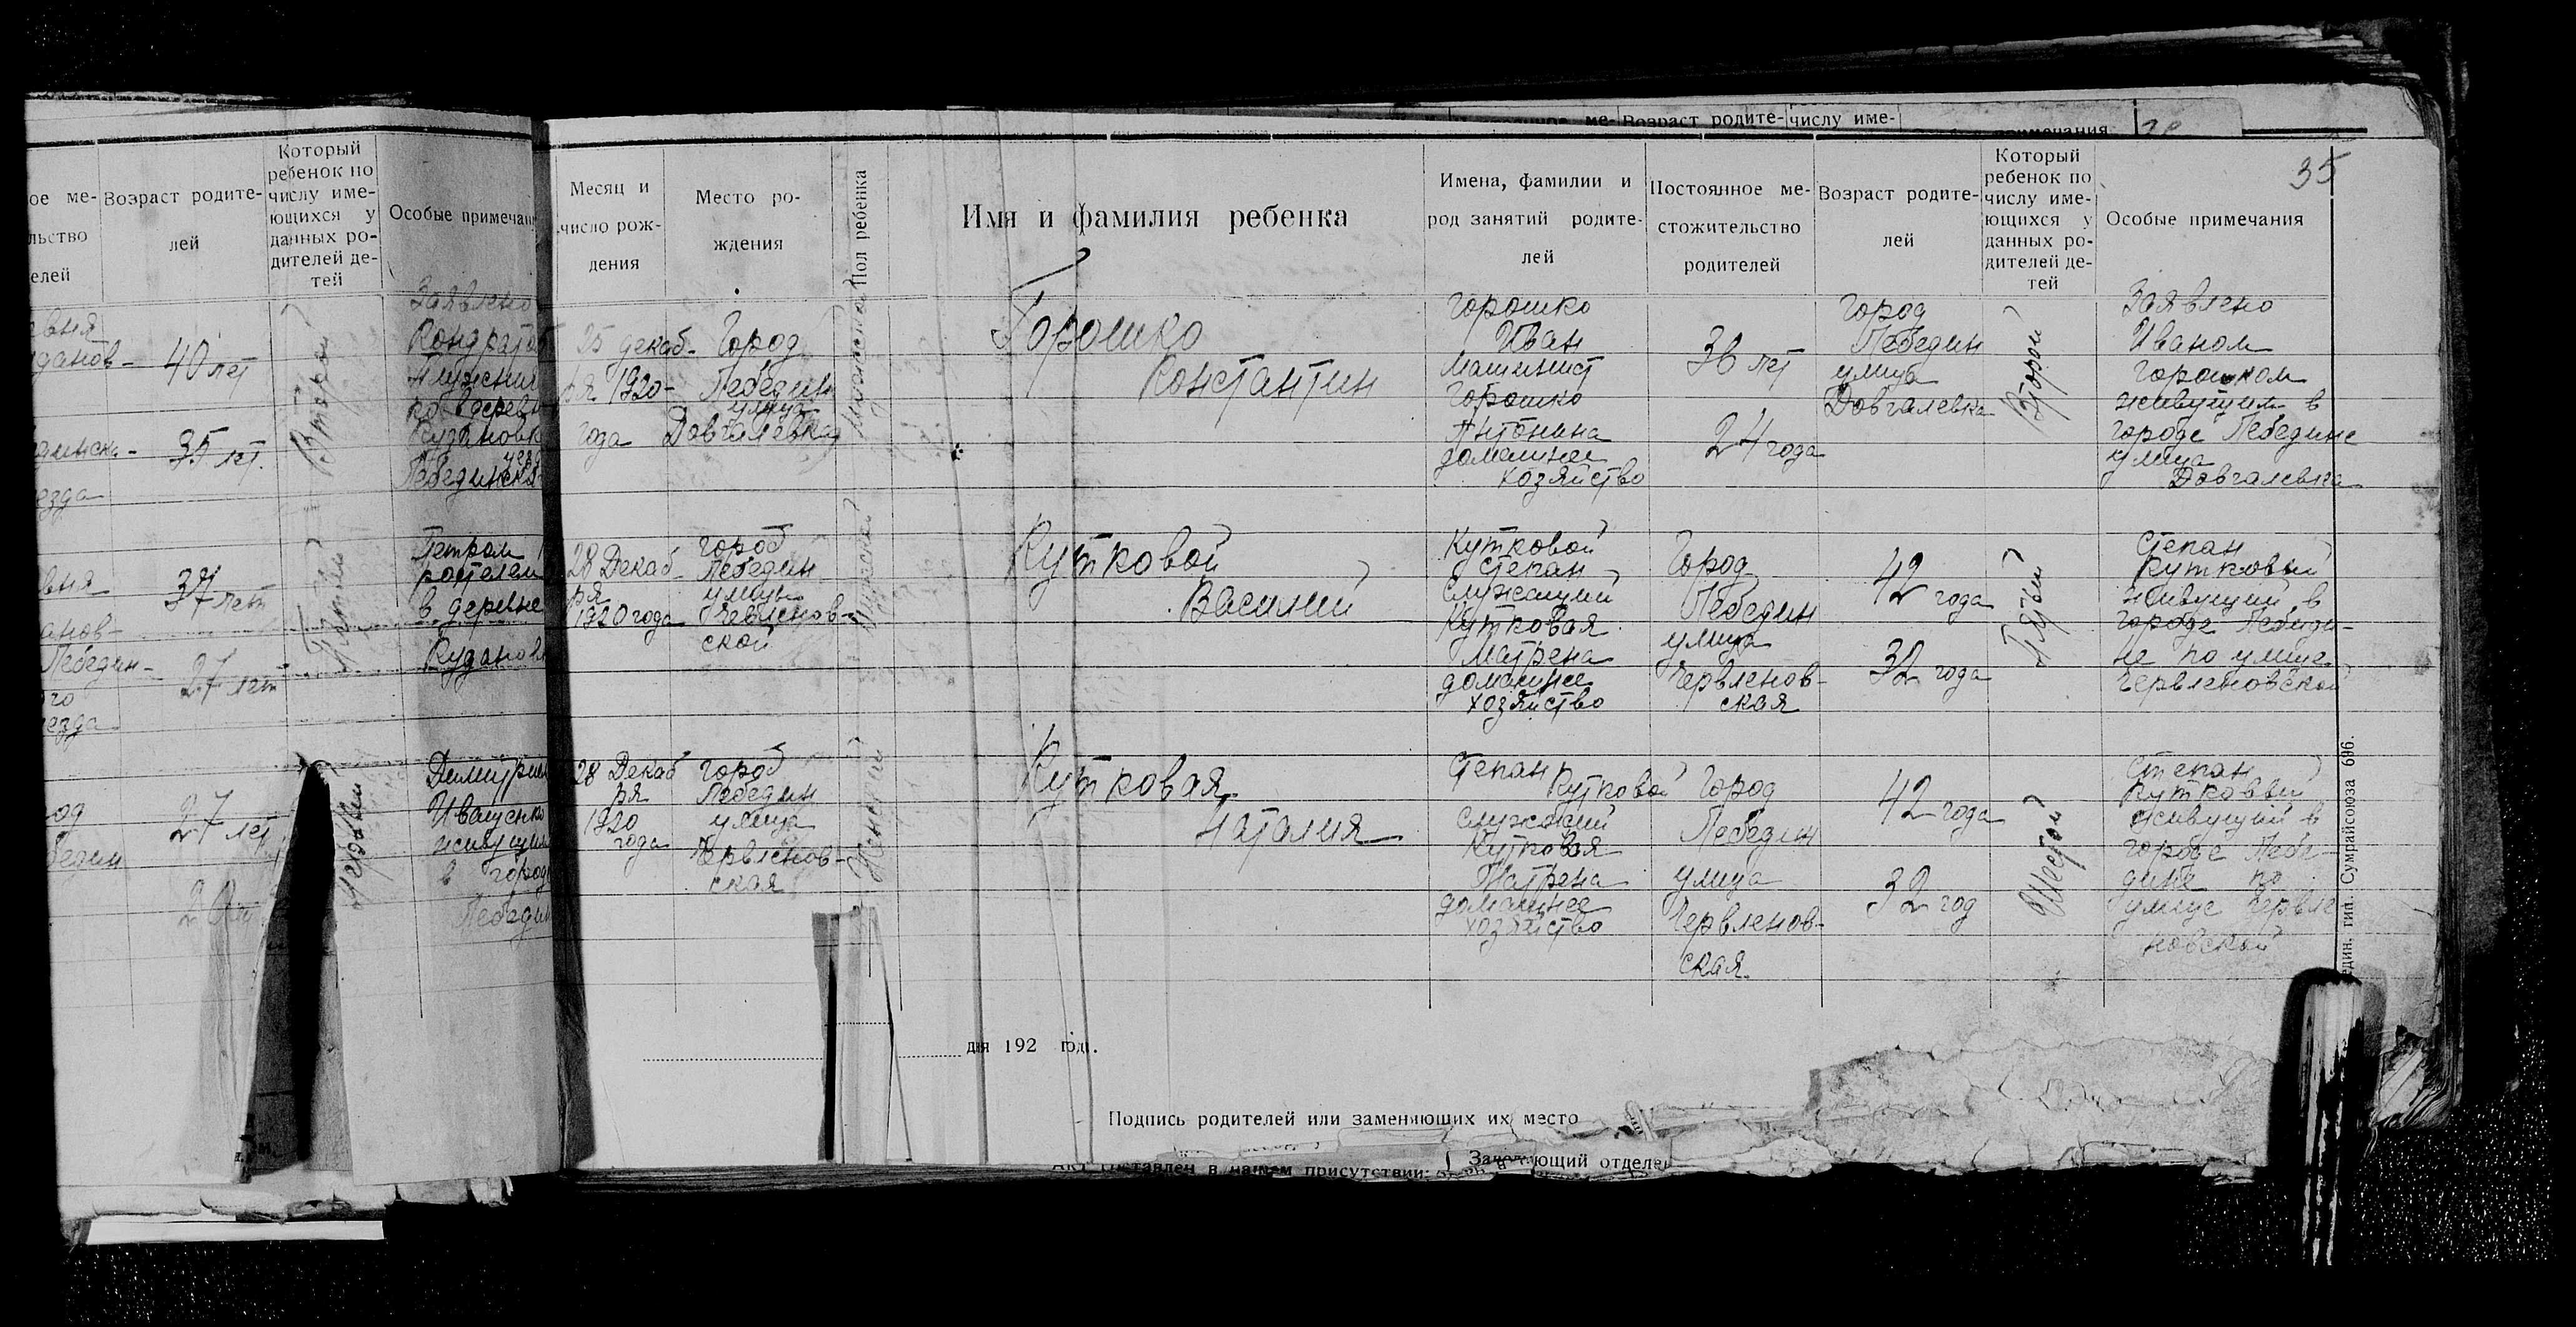 ме- Возраст родите- числу име-
ое ме-
льство
елей
Возраст родите-
лей
Который
ребенок по
числу име-
ющихся у
данных ро-
дителей де-
тей
Особые примечан
вня
данов-
40 лет
35 лет.
езда
Второй
Заявлено
Лебединска
вня
анов-
Лебедин-
го
езда
37 лет
27 лет
Петром
в деревне
од
бедин
27 лет
Первый
Димитрием
Иващенко
живущим
в город
Лебедин
35
Месяц и
число рож-
дения
Место ро-
ждения
Пол ребенка
Имя и фамилия ребенка
Имена, фамилии и
род занятий родите-
лей
Постоянное ме-
стожительство
родителей
Возраст родите-
лей
Который
ребенок по
числу име-
ющихся у
данных ро-
дителей де-
тей
Особые примечания
25 декаб-
ря 1920-
года
Город
Лебедин
улица
Довгалевка
Мужской
Горошко
Константин
Горошко
Иван
машинист
Горошко
Антонина
домашнее
хозяйство
36 лет
24 года
Город
Лебедин
улица
Довгалевка
Второй
Заявлено
Иваном
Горошком
живущим в
городе Лебедине
улица
Довгалевка
28 Декаб-
ря
1920 года
город
Лебедин
улицы
Чевленов-
ской
Мужской
Кутковой
Василий
Кутковой
Степан
служащий
Кутковая
Матрена
домашнее
хозяйство
Город
Лебедин
улица
Червленов-
ская
42 года
32 года
Пятый
Степан
Кутковый
живущий в
городе Лебеди-
не по улице
Червленовской
28 Декаб
ря
1920
года
город
Лебедин
улица
Червленов-
ская
Женский
Кутковая
Наталия
Степан
Кутковой
служащий
Кутковая
Матрена
домашнее
хозяйство
Город
Лебедин
улица
Червленов-
ская
42 года
32 год
Шестой
Степан
Кутковый
живущий в
городе Лебе-
дине по
улице Червле
новской
един. тип. Сумрайсоюза 696.
дня 192 года.
Подпись родителей или заменяющих их место
Акт составлен в нашем присутствии: